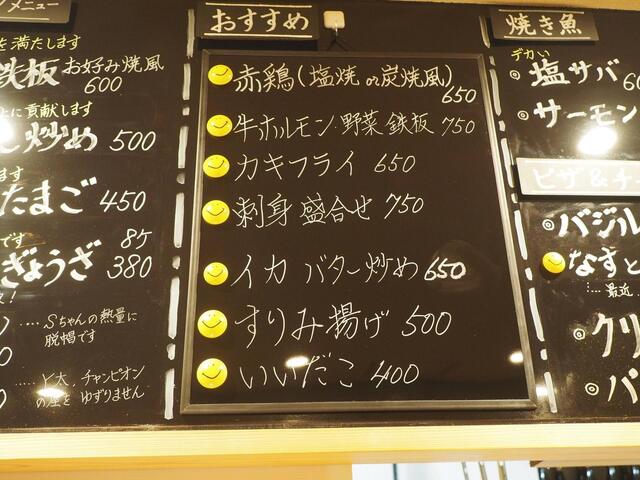 メニュー
を満たします
鉄板 お好み焼風
600
に貢献します
炒め 500
ます
たまご 450
です 85
ぎょうざ 380
‥‥ Sちゃんの熱量に
脱帽です
‥‥ Y太、チャンピオン
の座を ゆずりません
おすすめ
赤鶏(塩焼 or 炭焼風)
650
牛ホルモン・野菜 鉄板 750
カキフライ 650
刺身 盛合せ 750
イカ バター炒め 650
すりみ揚げ 500
いいだこ 400
焼き魚
デカい
◎塩サバ
◎サーモン
ピザ&チ
◎バジル
なすと
‥‥最近
◎クリ
◎バ